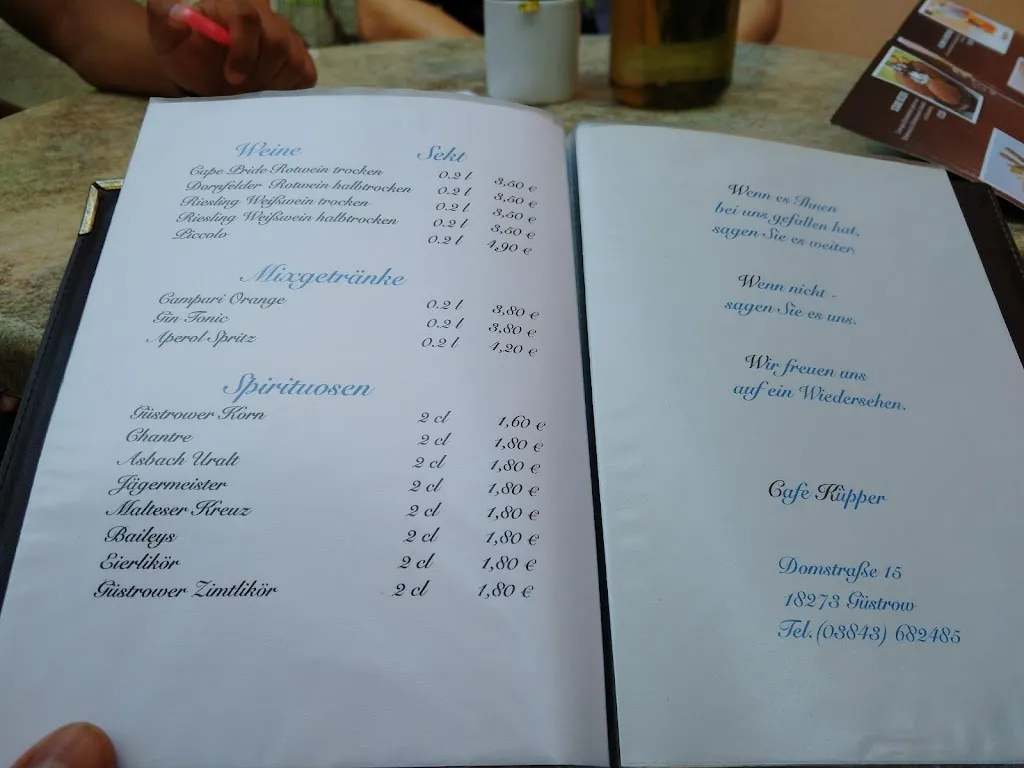 Weine Sekt
Cape Pride Rotwein trocken 0.2 l 3,50 €
Dornfelder Rotwein halbtrocken 0.2 l 3,50 €
Riesling Weißwein trocken 0.2 l 3,50 €
Riesling Weißwein halbtrocken 0.2 l 3,50 €
Piccolo 0.2 l 4,90 €
Mixgetränke
Campari Orange 0.2 l 3,80 €
Gin-Tonic 0.2 l 3,80 €
Aperol Spritz 0.2 l 4,20 €
Spirituosen
Güstrower Korn 2 cl 1,60 €
Chantre 2 cl 1,80 €
Asbach Uralt 2 cl 1,80 €
Jägermeister 2 cl 1,80 €
Malteser Kreuz 2 cl 1,80 €
Baileys 2 cl 1,80 €
Eierlikör 2 cl 1,80 €
Güstrower Zimtlikör 2 cl 1,80 €
Wenn es Ihnen
bei uns gefallen hat,
sagen Sie es weiter,
Wenn nicht -
sagen Sie es uns.
Wir freuen uns
auf ein Wiedersehen.
Cafe Küpper
Domstraße 15
18273 Güstrow
Tel.(03843) 682485